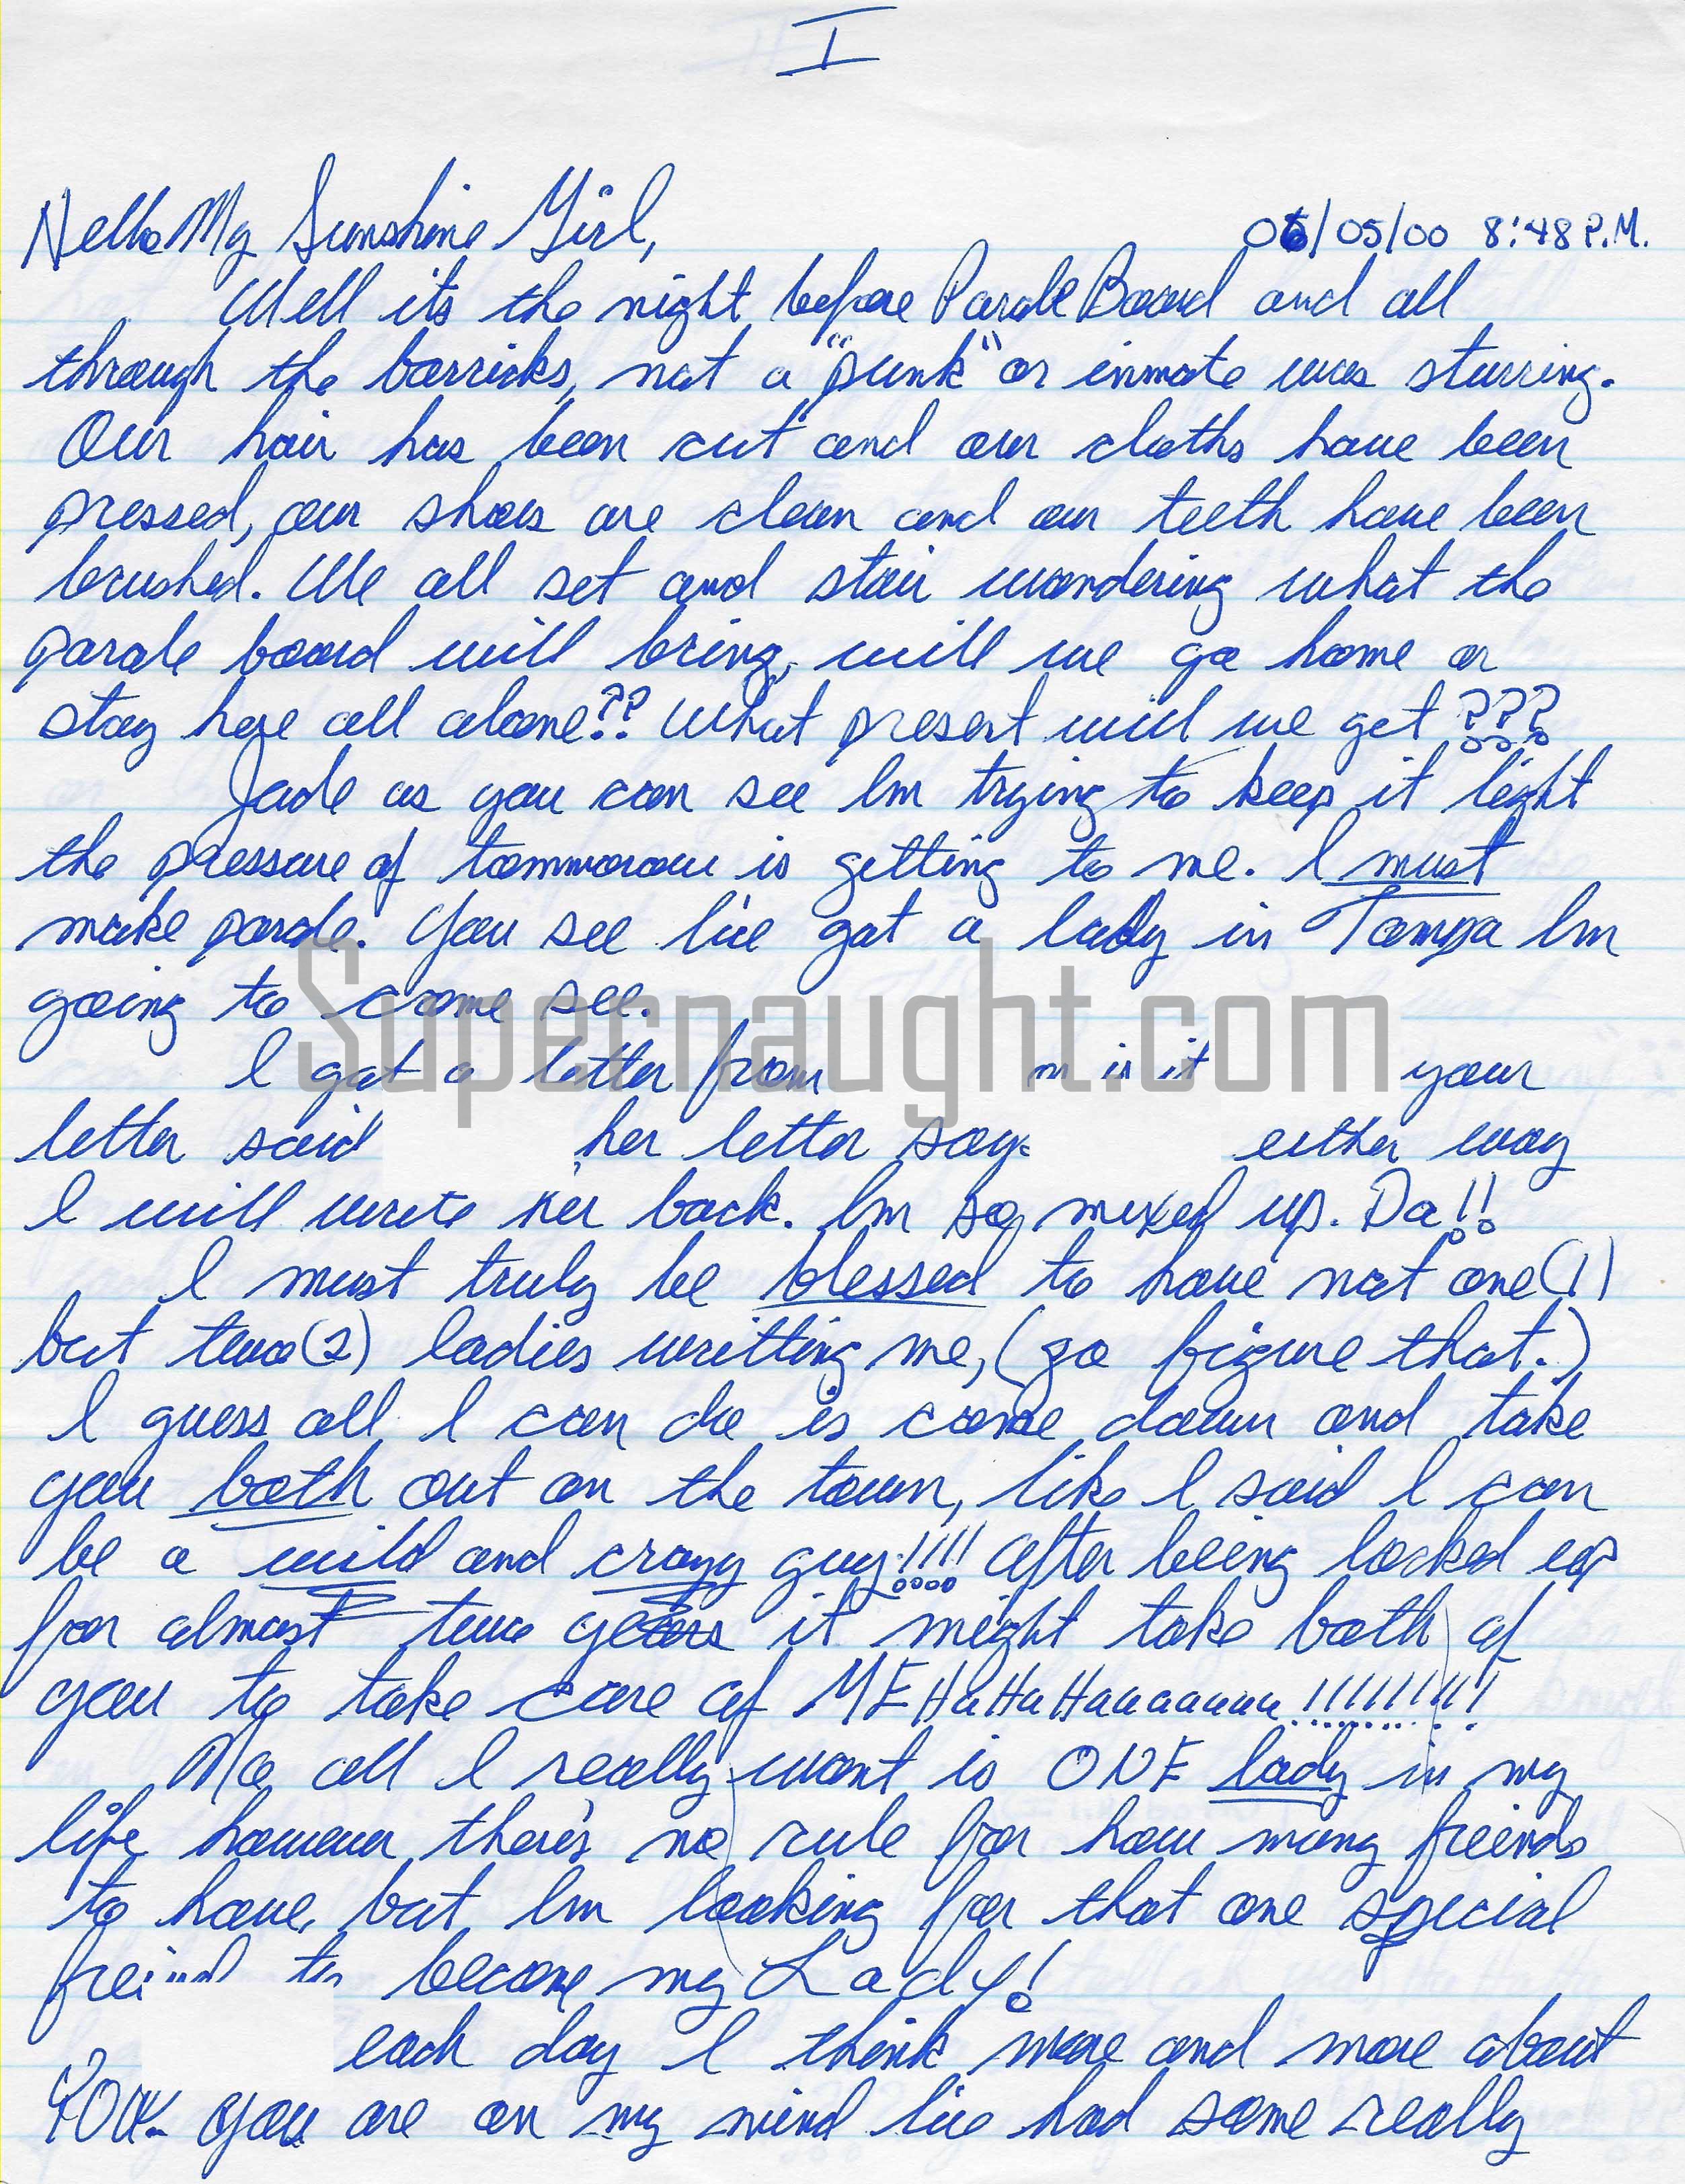 I
Hello My Sunshine Girl, 06/05/00 8:48 P.M.
Well its the night before Parole Board and all
through the barricks, not a "punk" or inmate was sturring.
Our hair has been cut and our cloths have been
pressed, our shoes are clean and our teeth have been
brushed. We all set and stair wondering what the
parole board will bring, will we go home or
stay here all alone?? What present will we get ???
Jade as you can see Im trying to keep it light
the pressure of tommorow is getting to me. I must
make parole. You see Ive got a lady in Tampa Im
going to come see.
Supernaught.com
I got a letter from or is it your
letter said her letter says either way
I will write her back. Im so mixed up. Da!!
I must truly be blessed to have not one(1)
but two(2) ladies writting me, (go figure that.)
I guess all I can do is come down and take
you both out on the town, like I said I can
be a wild and crazy guy!!!! After being locked up
for almost two years it might take both of
you to take care of ME HaHaHaaaaaaa!!!!!!!!!
No, all I really want is ONE lady in my
life however there's no rule for how many freinds
to have, but Im looking for that one special
freind to become my Lady!
each day I think more and more about
YOU. you are on my mind Ive had some really